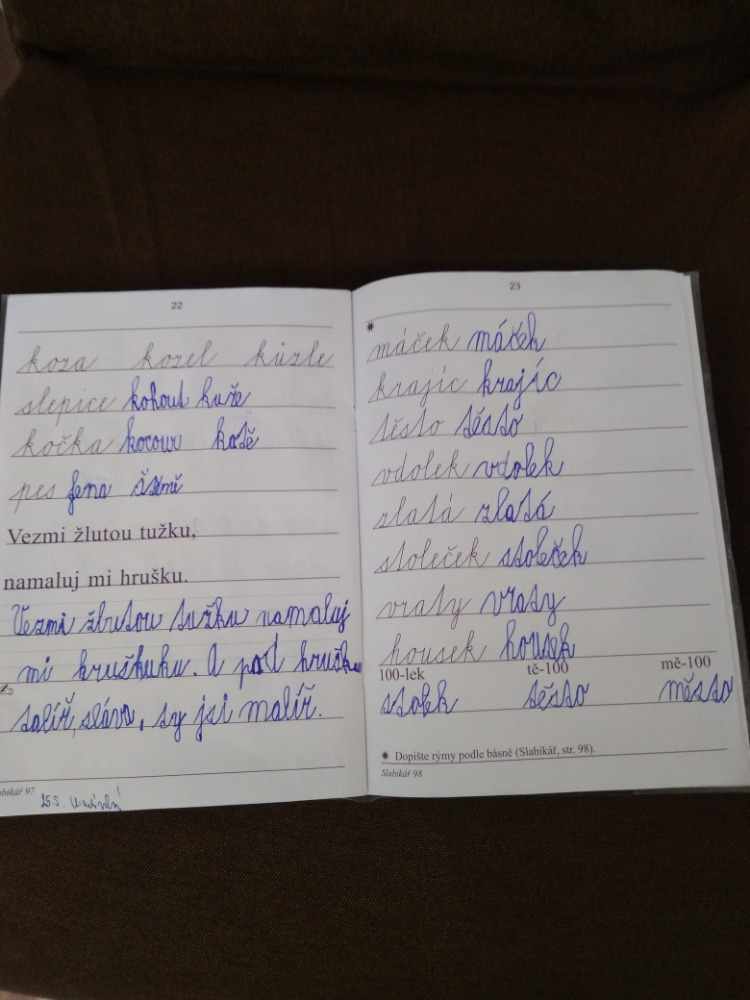 22
koza kozel kůzle
slepice kohout kuře
kočka kocour kotě
pes fena štěně
Vezmi žlutou tužku,
namaluj mi hrušku.
Vezmi žlutou tužku namaluj
mi hruškuku. A pod hrušku
talíř, sláva, ty jsi malíř.
Slabikář 97
23
máček máček
krajíc krajíc
těsto těsto
vdolek vdolek
zlatá zlatá
stoleček stoleček
vraty vraty
housek housek
100-lek tě-100 mě-100
stolek těsto město
✷ Dopište rýmy podle básně (Slabikář, str. 98).
Slabikář 98